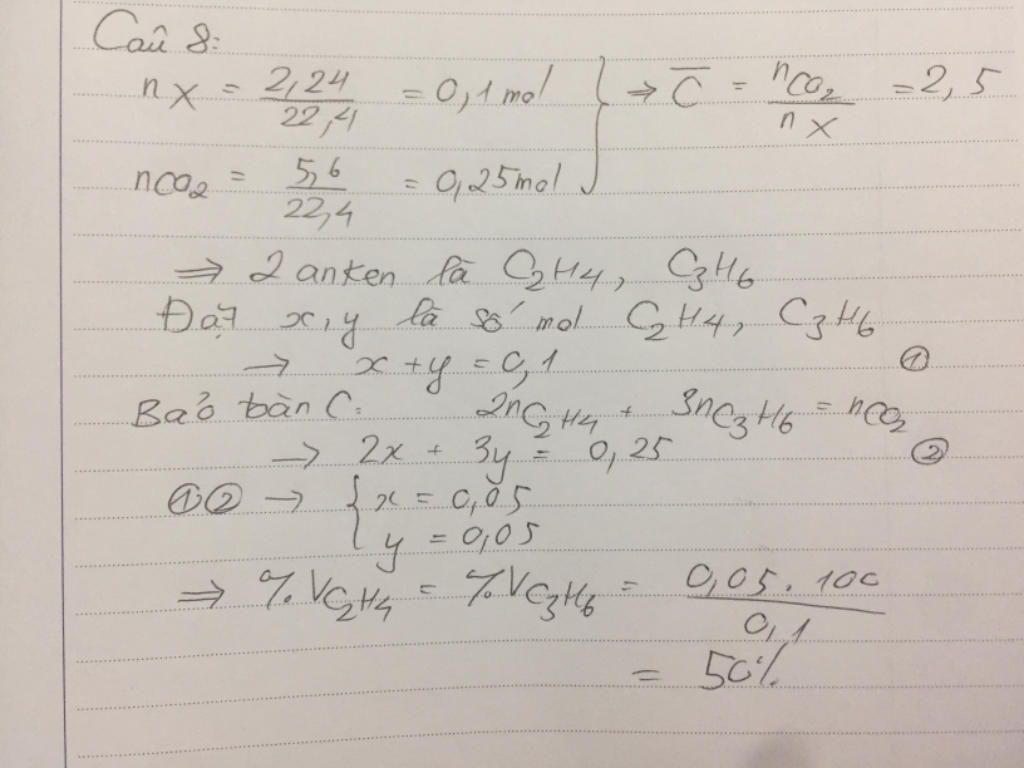 Câu 8:
nX = 2,24/22,4 = 0,1 mol } => C̅ = nCO2/nX = 2,5
nCO2 = 5,6/22,4 = 0,25 mol
=> 2 anken là C2H4, C3H6
Đặt x, y là số mol C2H4, C3H6
→ x + y = 0,1 ①
Bảo toàn C: 2nC2H4 + 3nC3H6 = nCO2
→ 2x + 3y = 0,25 ②
①② → { x = 0,05
y = 0,05
=> %VC2H4 = %VC3H6 = 0,05.100/0,1
= 50%